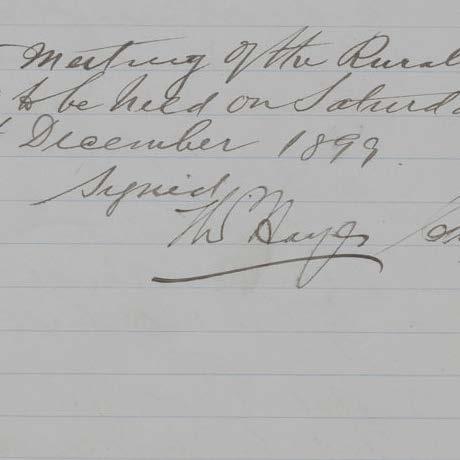 Meeting of the Rural
to be held on Saturda
December 1899.
Signed
Thos Hayes